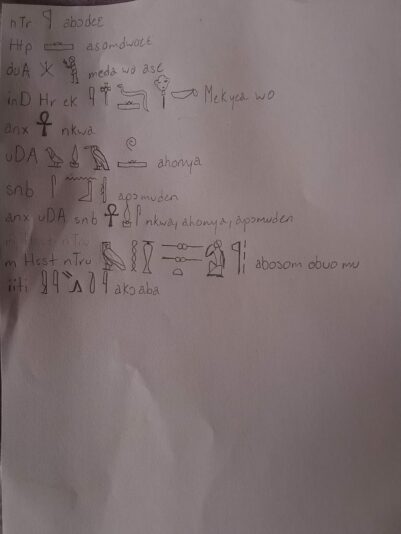 nTr 𓊹 abɔdeɛ
Htp 𓊵 asomdwoeɛ
duA 𓇼 𓀢 meda wo ase
inD Hr ek Mekyea wo
anx 𓋹 nkwa
uDA ahonya
snb apɔmuden
anx uDA snb 𓋹𓍑𓋴 nkwa, ahonya, apɔmuden
m Hest nTru abosom obuo mu
iiti akɔaba